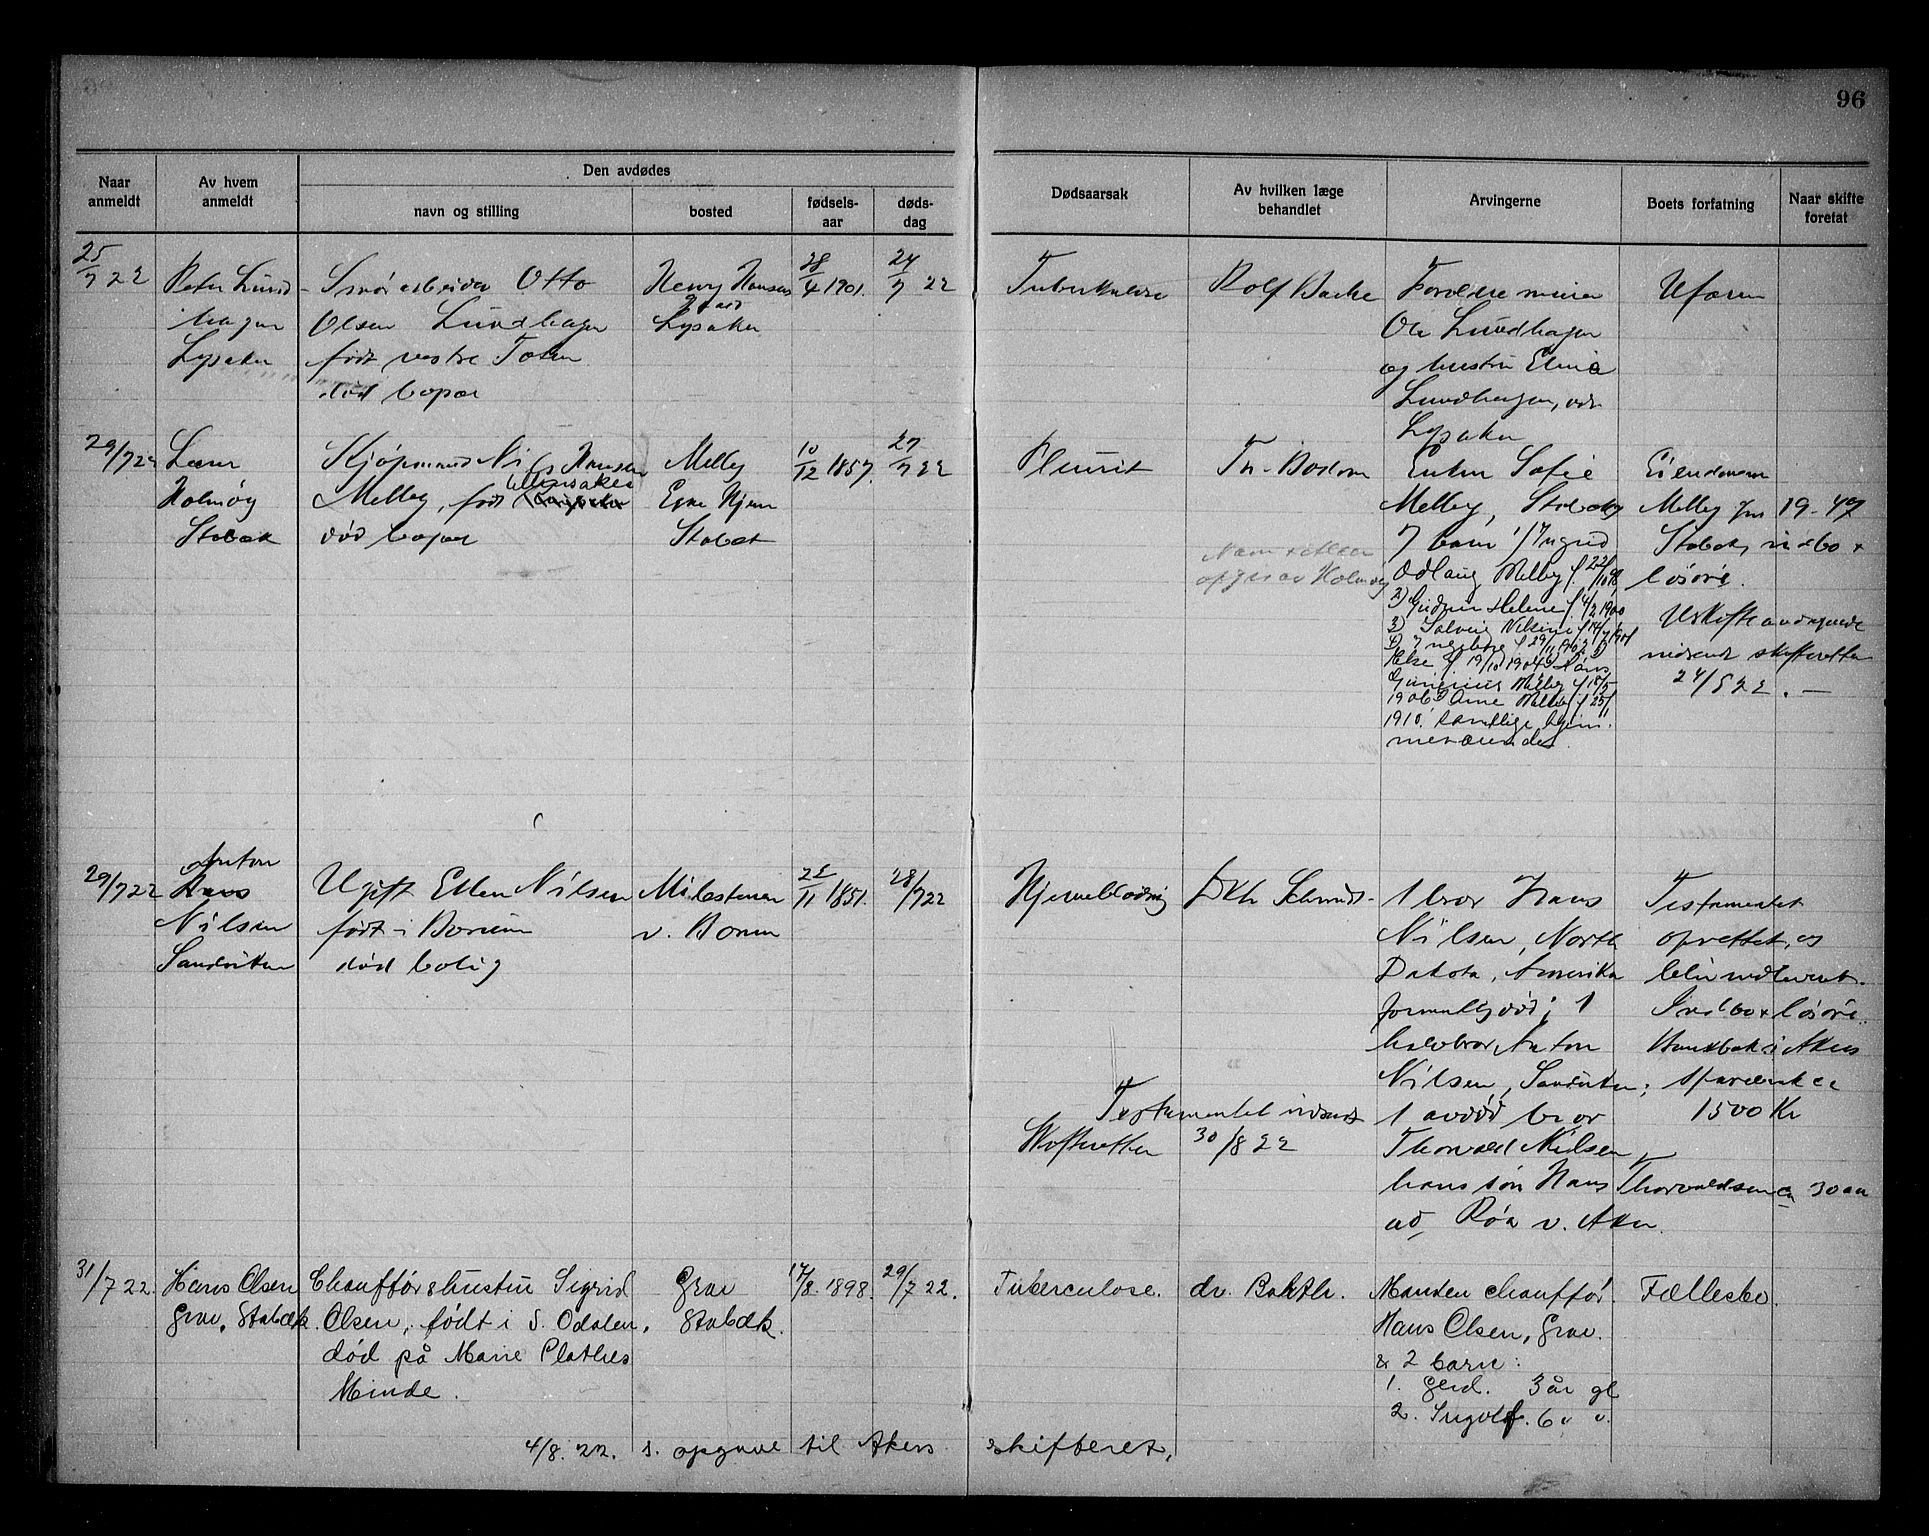 96
Naar anmeldt
Av hvem anmeldt
Den avdødes
navn og stilling
bosted
fødsels-aar
døds-dag
Dødsaarsak
Av hvilken læge behandlet
Arvingerne
Boets forfatning
Naar skifte foretat
25/7 22
Peter Lund-
hagen
Lysaker
Otto
Olsen Lundhagen
født vestre Toten
død bopæl
Henry Hansens
gaard
Lysaker
28/4 1901.
24/7 22
Tuberkulose
Rolf Backe
Forældrene
Ole Lundhagen
og hustru
Lundhagen, adr
Lysaker
29/7 22
Lærer
Holmøy
Stabæk
Kjøpmand Nils Hansen
Ullensaker
Melby, født
død bopæl
Melby
Eget Hjem
Stabæk
10/12 1857.
27/7 22
Pleurit
Enken Sofie
Melby, Stabæk
7 barn 1) Ingrid
Odlaug Melby f. 22/10 98
2) Gudrun Helene f 4/2 1900
3) Solveig Nilsine f 14/7 1901
4) Ingeborg f 29/11 1902 5)
Else f 19/10 1904 6)
Melby f 18/5
1906 7) Arne Melby f 25/11
1910. samtlige hjem-
meværende.
Navn + alder
opgis av Holmøy
Eiendommen
Melby gnr 19-47
Stabæk, indbo +
løsøre.
Uskifteandragende
indsendt skifteretten
24/8 22. —
29/7 22
Anton
Hans
Nilsen
Sandviken
Ugift Ellen Nilsen
født i Bærum
død bolig
Milestenen
v. Bærum
22/11 1851.
28/7 22
Hjerneblødning
Schmidt-
1 bror Hans
Nilsen, North
Dakota, Amerika
formentlig død; 1
halvbror, Anton
Nilsen, Sandviken;
1 avdød bror
Thorvald Nilsen,
hans søn Hans Thorvaldsen ca 30 aar
adr. Røa v. Aker.
Testamentet
oprettet, og
blir indleveret.
Indbo + løsøre.
Bankbok i Akers
Sparebank ca
1500 Kr
Testamentet indsendt
Skifteretten 30/8 22
31/7 22.
Hans Olsen
Grav, Stabæk.
Chaufførshustru Sigrid
Olsen, født i S. Odalen,
død på Marie Plathes
Minde.
Grav
Stabæk.
17/8. 1898.
29/7 22.
Tuberculose.
dr.
Manden chauffør.
Hans Olsen, Grav.
& 2 barn:
1. Gerd. 3 år gl
2. Ingolf. 6 " ".
Fællesbo.
4/8. 22. s. opgave til Akers skifteret.